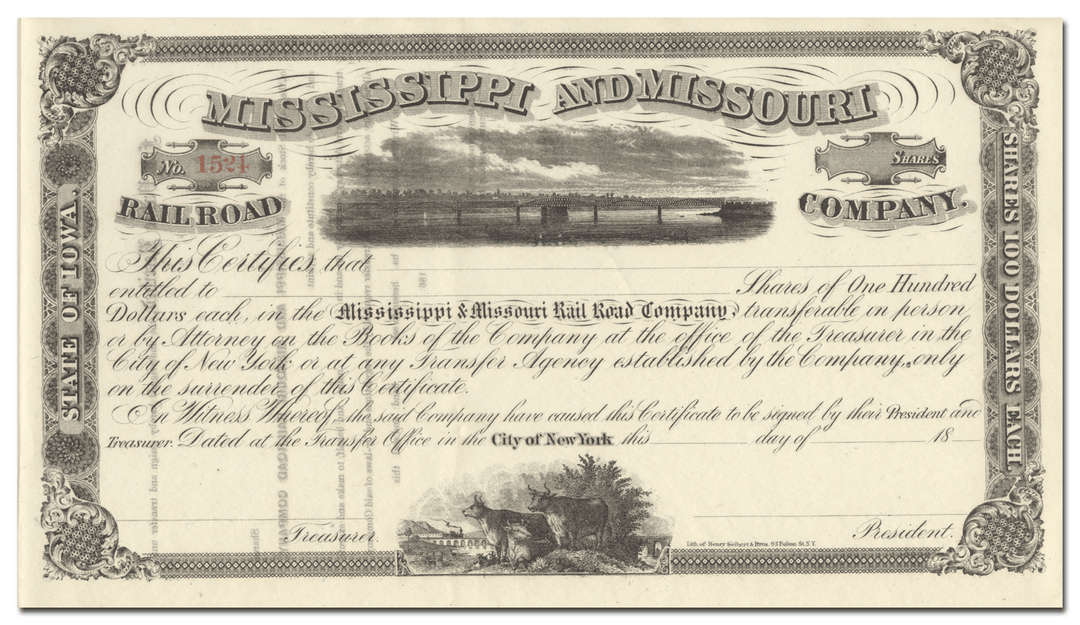 MISSISSIPPI AND MISSOURI
No. 1521
SHARES
RAIL ROAD
COMPANY.
STATE OF IOWA.
SHARES 100 DOLLARS EACH
This Certifies, that
entitled to Shares of One Hundred
Dollars each, in the Mississippi & Missouri Rail Road Company, transferable in person
or by Attorney on the Books of the Company at the office of the Treasurer in the
City of New York or at any Transfer Agency established by the Company, only
on the surrender of this Certificate.
In Witness Whereof, the said Company have caused this Certificate to be signed by their President and
Treasurer. Dated at the Transfer Office in the City of New York this day of 18
Treasurer.
President.
Lith. of Henry Seibert & Bros. 93 Fulton St. N.Y.